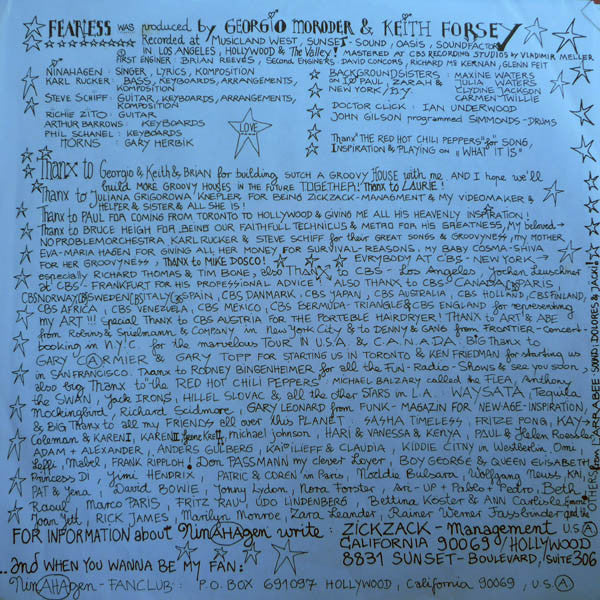 FEARLESS WAS produced by GEORGIO MORODER & KEITH FORSEY
Recorded at MUSICLAND WEST, SUNSET-SOUND, OASIS, SOUNDFACTORY
IN LOS ANGELES, HOLLYWOOD & The Valley! MASTERED AT CBS RECORDING STUDIOS by VLADIMIR MELLER
FIRST ENGINER BRIAN REEVES, SECOND ENGINERS: DAVID CONCORS, RICHARD MC KERNAN, GLENN FEIT
NINAHAGEN: SINGER, LYRICS, KOMPOSITION
KARL RUCKER: BASS, KEYBOARDS, ARRANGEMENTS,
KOMPOSITION
STEVE SCHIFF: GUITAR, KEYBOARDS, ARRANGEMENTS,
KOMPOSITION
RICHIE ZITO: GUITAR
ARTHUR BARROWS: KEYBOARDS
PHIL SCHANEL: KEYBOARDS
HORNS: GARY HERBIK
LOVE
BACKGROUNDSISTERS: MAXINE WATERS
ON "I♡ PAUL, ZARAH & JULIA WATERS
NEW YORK/N.Y. CLYDINE JACKSON
CARMEN TWILLIE
DOCTOR CLICK: IAN UNDERWOOD
JOHN GILSON programmed SIMMONDS-DRUMS
Thanx "THE RED HOT CHILI PEPPERS" for SONG,
INSPIRATION & PLAYING ON "WHAT IT IS"
Thanx to Georgio & Keith & BRIAN for building SUTCH A GROOVY HOUSE with me. AND I hope we'll
build MORE GROOVY HOUSES IN THE FUTURE TOGETHER! Thanx to LAURIE!
Thanx to JULIANA GRIGOROWA KNEPLER FOR BEING ZICKZACK-MANAGMENT & MY VIDEOMAKER &
HELPER & SISTER & ALL SHE IS!
Thanx to PAUL FOR COMING FROM TORONTO TO HOLLYWOOD & GIVING ME ALL HIS HEAVENLY INSPIRATION!
Thanx to BRUCE HEIGH FOR BEING OUR FAITHFULL TECHNICUS & METRO FOR HIS GREATNESS, MY beloved→
NOPROBLEMORCHESTRA KARL RUCKER & STEVE SCHIFF for their GREAT SONGS & GROOVYNESS, MY MOTHER
EVA-MARIA HAGEN FOR GIVING ALL HER MONEY FOR SURVIVAL-REASONS. MY BABY COSMA-SHIVA
FOR HER GROOVYNESS. THANX to MIKE DOSCO! EVRYBODY AT CBS-NEW YORK→
especially RICHARD THOMAS & TIM BONE, also Thanx to CBS-Los Angeles Jochen Leuschner
at CBS-FRANKFURT FOR HIS PROFESSIONAL ADVICE! ALSO THANX TO CBS CANADA, CBS PARIS,
CBS NORWAY, CBS SWEDEN, CBS ITALY, CBS SPAIN, CBS DANMARK, CBS YAPAN, CBS AUSTRALIA, CBS HOLLAND, CBS FINLAND,
CBS AFRICA, CBS VENEZUELA, CBS MEXICO, CBS BERMUDA-TRIANGLE & CBS ENGLAND for representing
my ART!!! Special Thanx to CBS AUSTRIA FOR THE PORTEBLE HAIRDRYER! THANX to ART & ABE
from Robins & Spielmann & COMPANY in New York City & to DENNY & GANG from FRONTIER-Concert-
booking in N.Y.C. for the marvelous TOUR IN U.S.A & C.A.N.A.D.A. BIG Thanx to
GARY CARMIER & GARY TOPP FOR STARTING US IN TORONTO & KEN FRIEDMAN for starting us
IN SAN FRANCISCO. Thanx to RODNEY BINGENHEIMER for all the Fun-Radio-Shows & see you soon,
also big Thanx to "the RED HOT CHILI PEPPERS": MICHAEL BALZARY called the FLEA, Anthony
the SWAN, JACK IRONS, HILLEL SLOVAC & all the other STARS in L.A.: WAYSATA, Tequila
Mockingbird, Richard Scidmore, GARY LEONARD from FUNK-MAGAZIN FOR NEW-AGE-INSPIRATION,
& BIG Thanx to all my FRIENDS all over this PLANET: SASHA TIMELESS, FRITZE PONG, KAY→
Coleman & KAREN I, KAREN II, michael johnson, HARI & VANESSA & KENYA, PAUL & Helen Roessler
ADAM + ALEXANDER, ANDERS GULBERG KAI & CLAUDIA, KIDDIE CITNY in Westberlin Omi
Loffi, Mabel, FRANK RIPPLOH! Don PASSMANN my clever Loyer, BOY GEORGE & QUEEN ELISABETH
Princess Di JIMI HENDRIX, PATRIC & COREN in Paris, Noddie Bulsara, Wolfgang Neuss, KAI,
PAT & Jena, David BOWIE, Jonny Lydon, Nora Forster, Art-UP & Pablo & Pedro, Beth,
Raoul, Marco PARIS, FRITZ RAU, UDO LINDENBERG, Bettina Koster & ANN Carlisle,
Joan Jett, RICK JAMES, Marilyn Monroe, Zara Leander, Rainer Werner Fassbinder and the
OTHERS from L'ARRABEE SOUND, DOLORES & JACKIE
FOR INFORMATION about NinAHAgen write: ZICKZACK-Management U.S.A
CALIFORNIA 90069/HOLLYWOOD
8831 SUNSET-BOULEVARD, /SUITE 306
...and WHEN YOU WANNA BE MY FAN:
NinAHAgen-FANCLUB: P.O. BOX 691097 HOLLYWOOD, California 90069, U.S.A